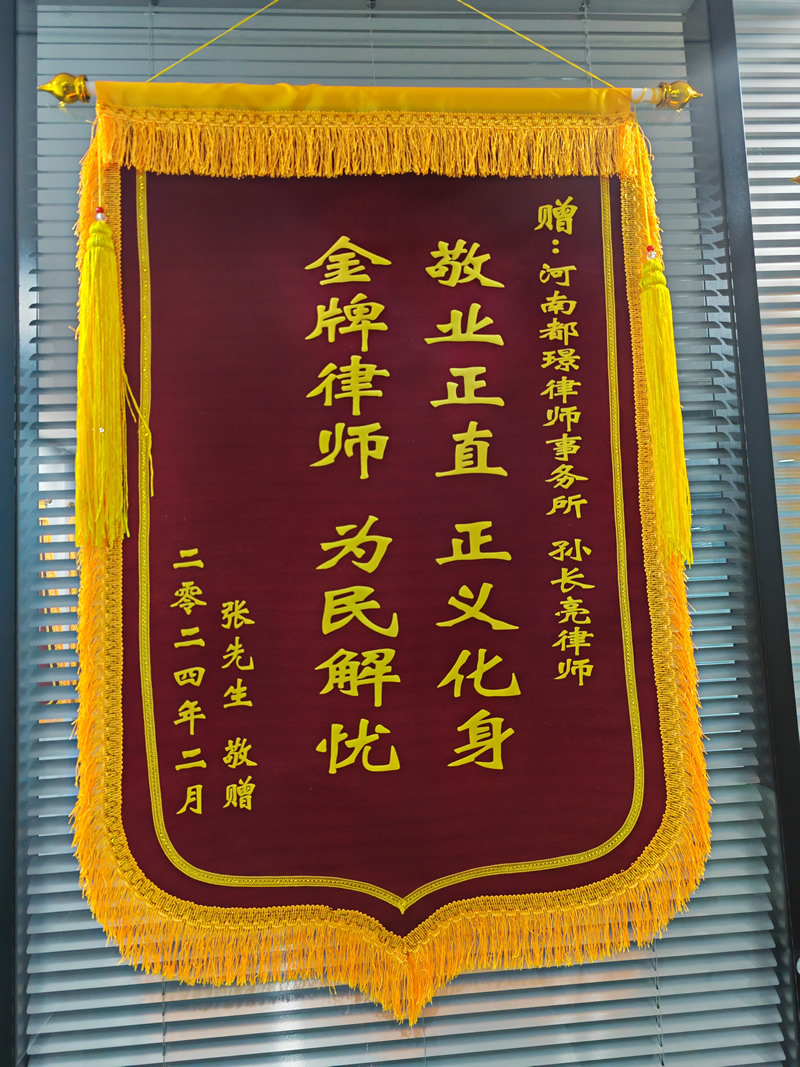 赠：河南都璟律师事务所 孙长亮律师
敬业正直 正义化身
金牌律师 为民解忧
张先生 敬赠
二零二四年二月